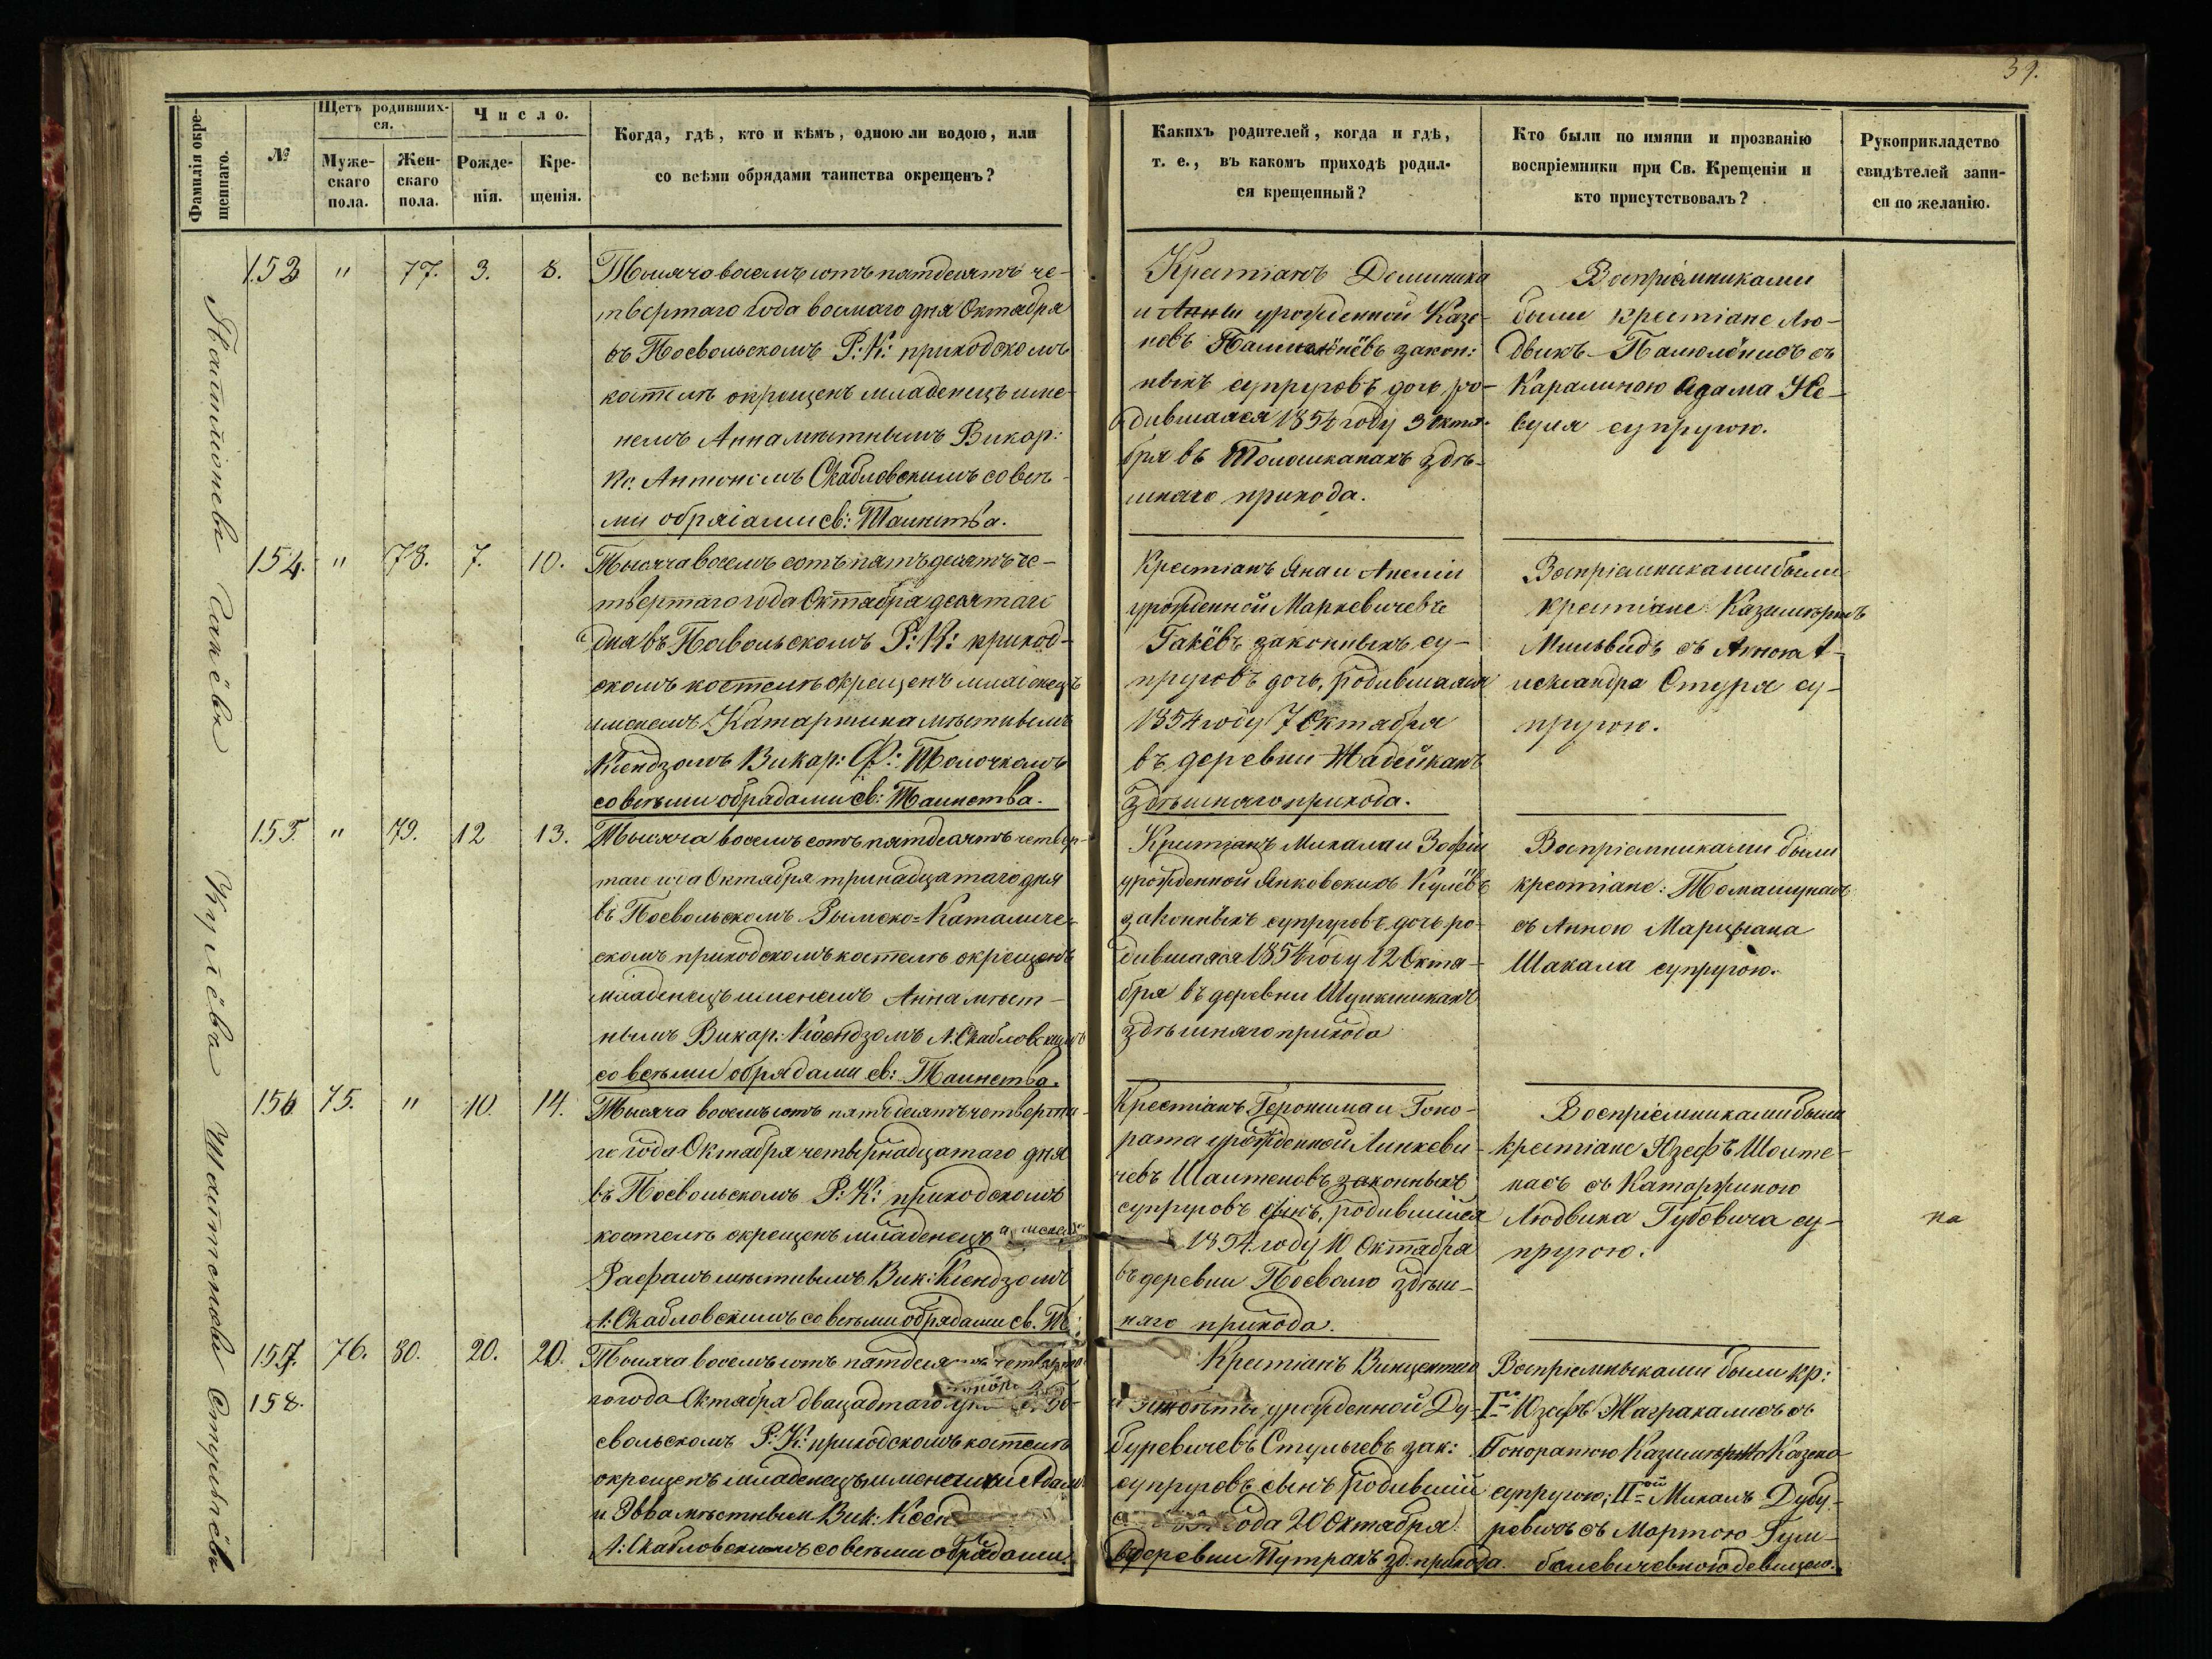 39.
Фамилія окре-
щеннаго.
№
Щетъ родивших-
ся.
Муже-
скаго
пола.
Жен-
скаго
пола.
Число.
Рожде-
нія.
Кре-
щенія.
Когда, гдѣ, кто и кѣмъ, одною ли водою, или
со всѣми обрядами таинства окрещенъ?
Какихъ родителей, когда и гдѣ,
т. е., въ какомъ приходѣ родил-
ся крещенный?
Кто были по имяни и прозванію
воспріемники при Св. Крещеніи и
кто присутствовалъ?
Рукоприкладство
свидѣтелей запи-
си по желанію.
153 " 77. 3. 8.
Тысяча восемъ сотъ пятдесятъ че-
твертаго года восмаго дня Октября
въ Посвольскомъ Р: К: приходскомъ
костелѣ окрещенъ младенецъ име-
немъ Анна мѣстнымъ Викар:
Кс. Антонiмъ Скабловскимъ со всѣ-
ми обрядами св: Таинства.
Крестьянъ Доминика
и Анны урожденной Казе-
новъ законн:
ныхъ супруговъ дочь ро-
дившаяся 1854 году 3 Октя-
бря въ здѣ-
шняго прихода.
Воспріемниками
были крестіане Лю-
двикъ съ
Каралиною Адама Не-
вуля супругою.
154. " 78. 7. 10.
Тысяча восемъ сотъ пятьдесятъ че-
твертаго года Октября десятаго
дня въ Посвольскомъ Р: К: приход-
скомъ костелѣ окрещенъ младенецъ
именемъ Катаржина мѣстнымъ
Ксендзомъ Викар: Ф: Толочкомъ
со всѣми обрядами св: Таинства.
Крестіанъ Яна и Анеліи
урожденной Маркевичевъ
законныхъ су-
пруговъ дочь, родившаяся
1854 году 7 Октября
въ деревни Жадейкахъ
здѣшняго прихода.
Воспріемниками были
крестіане Казимѣржъ
Мильвидъ съ Анною А-
лександра Стуря су-
пругою.
155 " 79. 12 13.
Тысяча восемъ сотъ пятдесятъ четвер-
таго года Октября тринадцатаго дня
въ Посвольскомъ Рымско-Каталиче-
скомъ приходскомъ костелѣ окрещенъ
младенецъ именемъ Анна мѣст-
нымъ Викар: Ксендзомъ А: Скабловскимъ
со всѣми обрядами св: Таинства.
Крестіанъ Михала и Зофіи
урожденной Янковскихъ Кулёвъ
законныхъ супруговъ дочь ро-
дившаяся 1854 году 12 Октя-
бря въ деревни
здѣшняго прихода
Воспріемниками были
крестіане:
съ Анною Марцыана
Шакала супругою.
156 75. " 10. 14.
Тысяча восемъ сотъ пятьдесятъ четверта-
го года Октября четырнадцатаго дня
въ Посвольскомъ Р: К: приходскомъ
костелѣ окрещенъ младенецъ именемъ
Рафалъ мѣстнымъ Вик: Ксендзомъ
А: Скабловскимъ со всѣми обрядами св. Т:
Крестіанъ Геронима и Гоно-
рата урожденной Линкеви-
чевъ законныхъ
супруговъ сынъ, родившійся
1854 году 10 Октября
въ деревни Посволю здѣш-
няго прихода.
Воспріемниками были
крестіане Юзефъ Шоите-
насъ съ Катаржиною
Людвика Губовича су-
пругою.
на
157. 76. 80. 20. 20.
158.
Тысяча восемъ сотъ пятдесятъ четверта-
го года Октября двацадтаго дня въ По-
свольскомъ Р: К: приходскомъ костелѣ
окрещенъ младенецъ именами Адамъ
и Эва мѣстнымъ Вик: Ксенд
А: Скабловскимъ со всѣми обрядами.
Крестіанъ Винцентаго
и урожденной Ду-
буревичевъ зак:
супруговъ сынъ родившій
года 20 Октября
въ деревни Путрахъ зд. прихода.
Воспріемныками были кр:
I Юзефъ съ
Гоноратою Казимѣржа
супругою; II Михалъ Дубу-
ревичъ съ Мартою Гум-
балевичевною девицею.
Сакёва
Кулёва